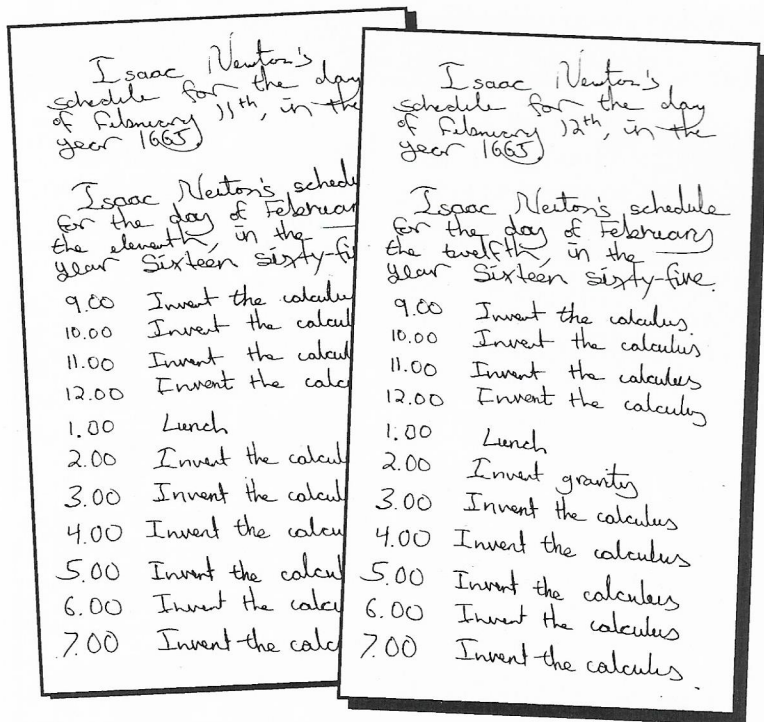 Isaac Newton's
schedule for the day
of February 11th, in the
year 1665.
Isaac Newton's schedu
for the day of Februar
the eleventh, in the
year Sixteen sixty-fi
9.00 Invent the calculu
10.00 Invent the calcul
11.00 Invent the calcul
12.00 Invent the calcu
1.00 Lunch
2.00 Invent the calcul
3.00 Invent the calcul
4.00 Invent the calcu
5.00 Invent the calcul
6.00 Invent the calcu
7.00 Invent the calc
Isaac Newton's
schedule for the day
of February 12th, in the
year 1665.
Isaac Newton's schedule
for the day of February
the twelfth, in the
year Sixteen sixty-five.
9.00 Invent the calculus.
10.00 Invent the calculus
11.00 Invent the calculus
12.00 Invent the calculus
1.00 Lunch
2.00 Invent gravity
3.00 Invent the calculus
4.00 Invent the calculus
5.00 Invent the calculus
6.00 Invent the calculus
7.00 Invent the calculus.